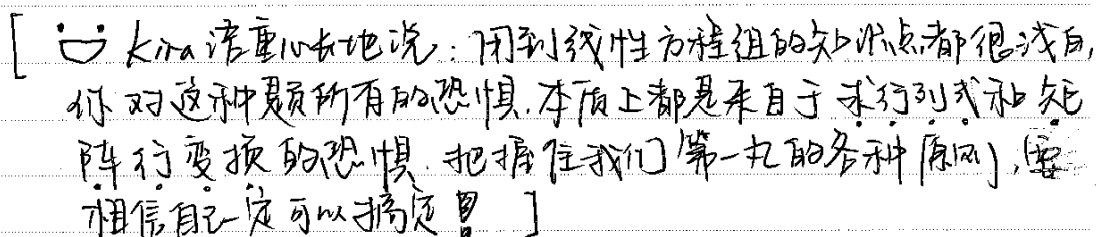 [ Kira语重心长地说:用到线性方程组的知识点都很浅白,
你对这种题所有的恐惧.本质上都是来自于求行列式和矩
阵行变换的恐惧.把握住我们第一丸的各种原则,要
相信自己一定可以搞定! ]